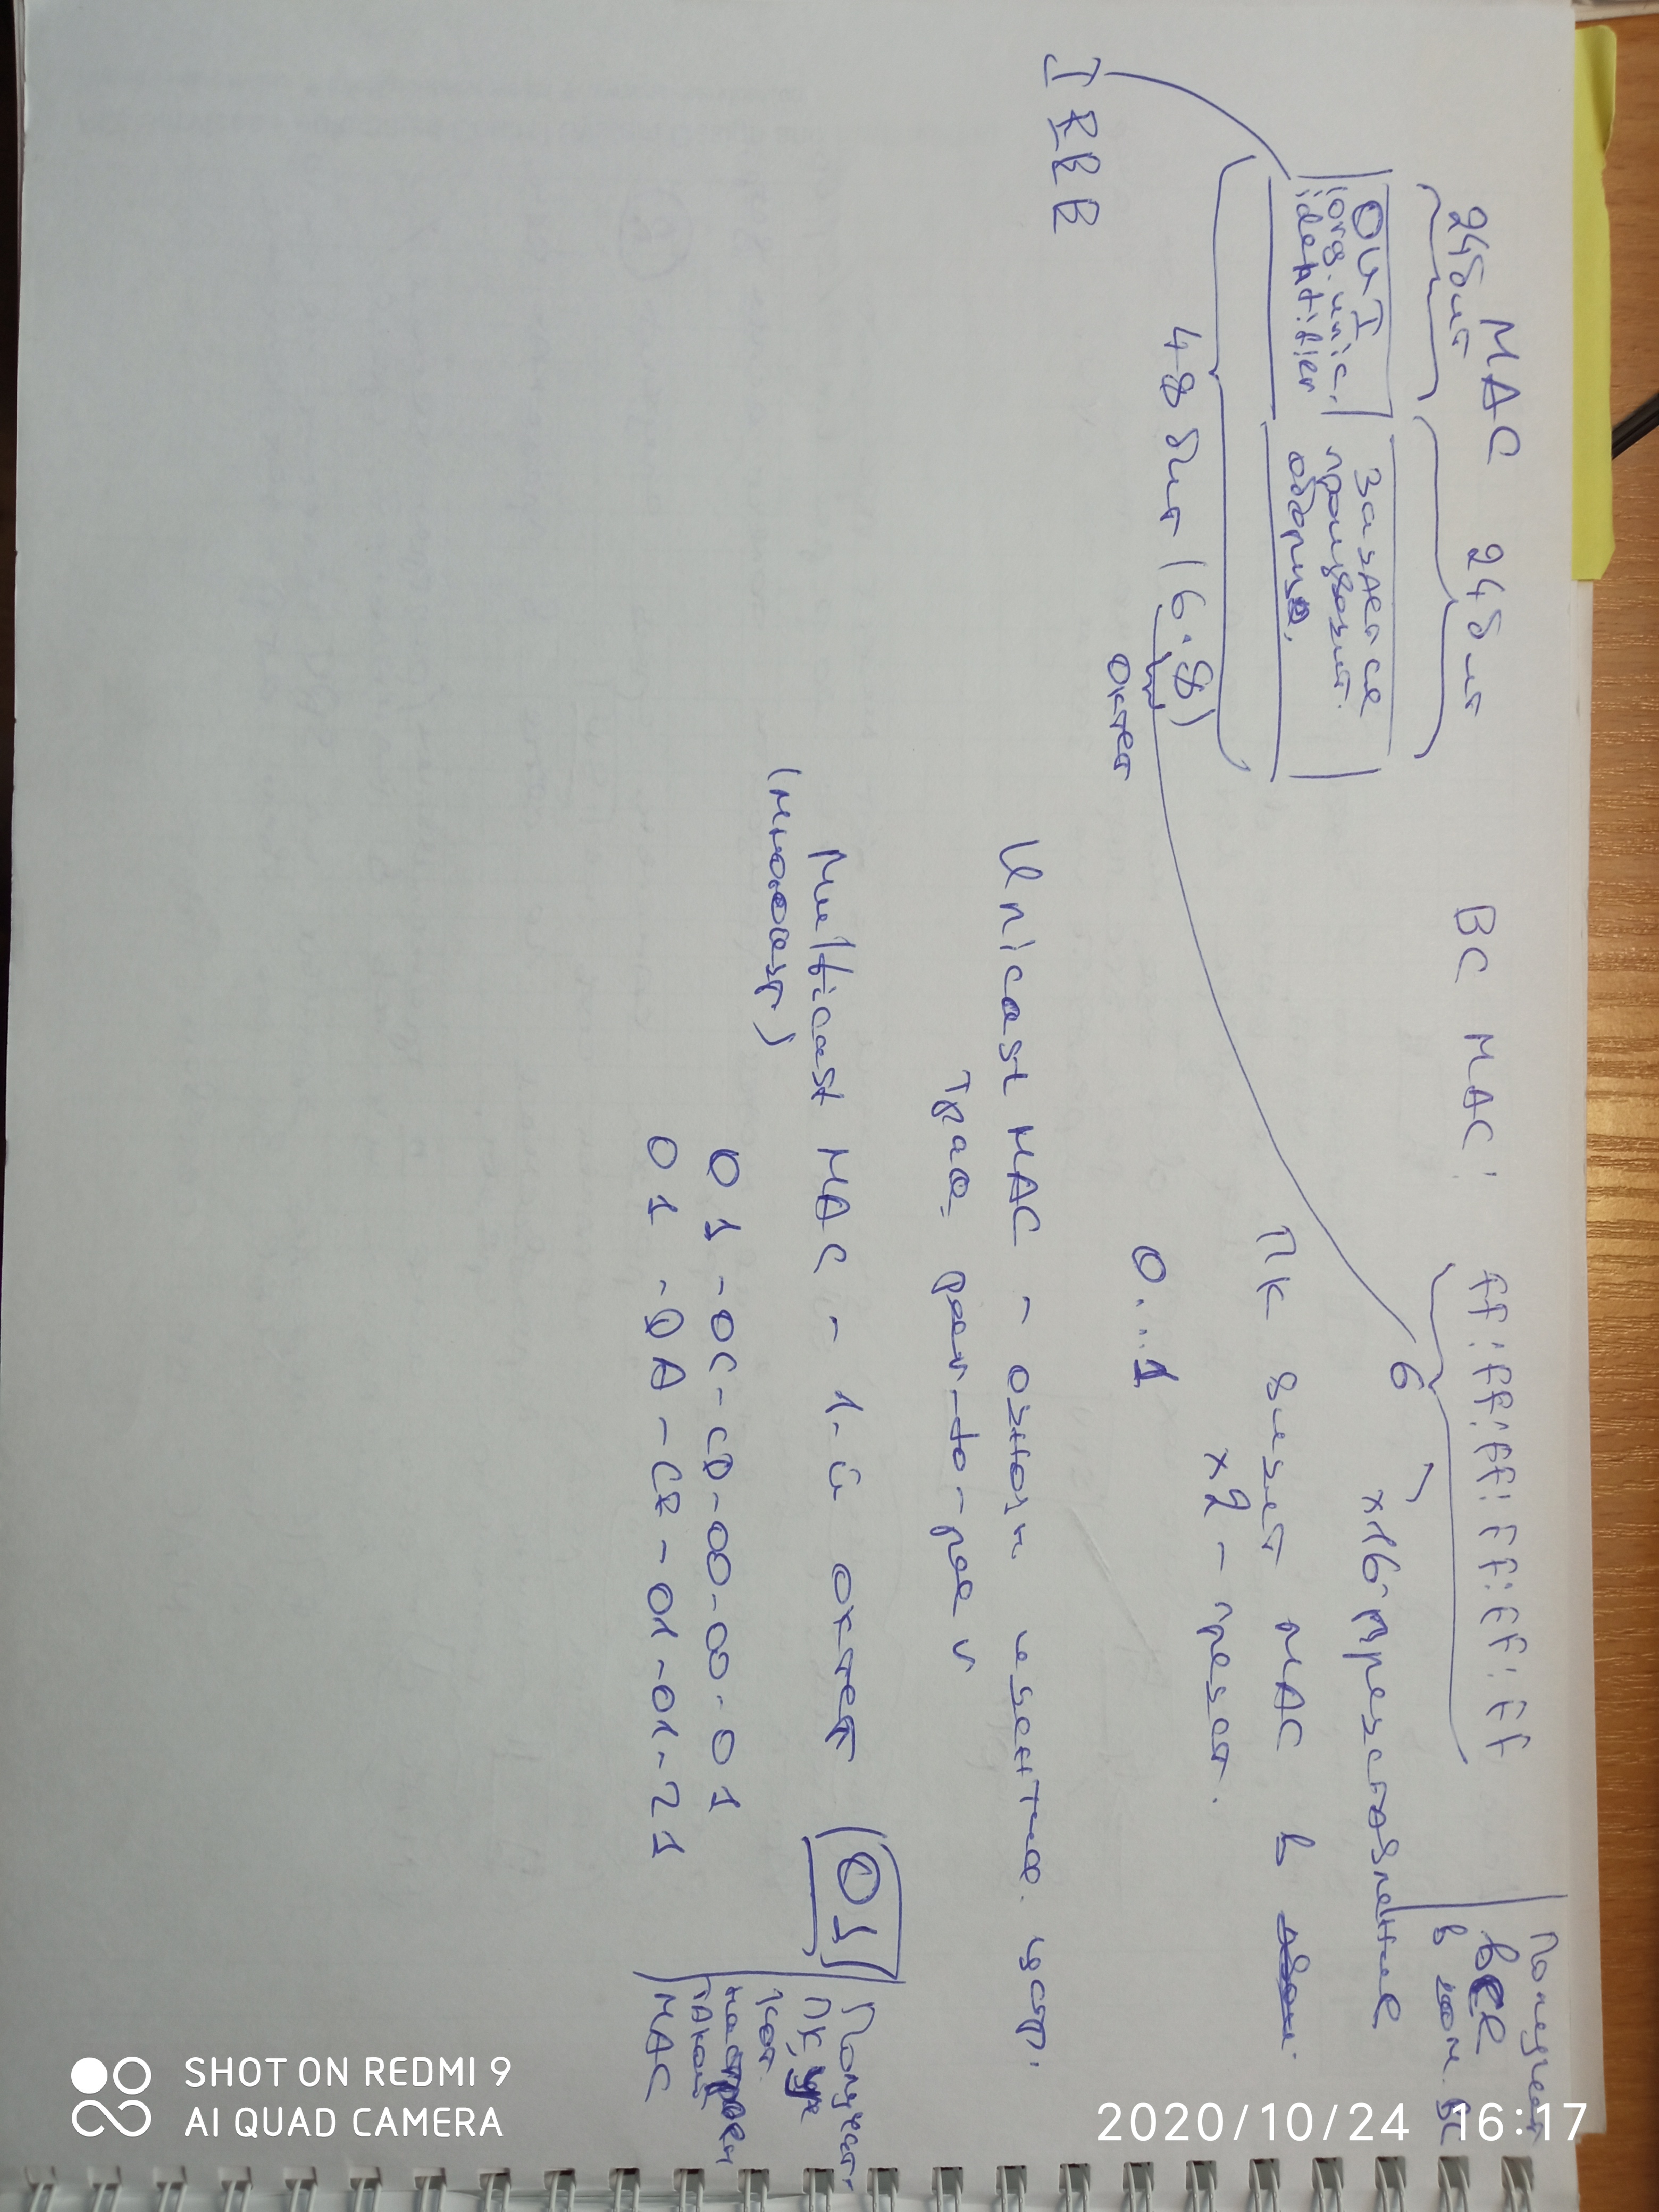 MAC
24 бит 24 бит
OUI
(org. unic.
identifier
Задается
производит.
оборуд.
48 бит (6·8)
октет
IEEE
BC MAC: FF:FF:FF:FF:FF:FF
6
x16-представление
Получат
все
в дом. BC
ПК видит MAC в
x2 – предст.
0...1
Unicast MAC – однозн идентиф. устр.
траф. peer-to-peer
Multicast MAC – 1-й октет (01)
(многоадр)
01-0C-CD-00-00-01
01-DA-CF-01-01-21
Получат
ПК, у
кот.
настроен
такой
MAC
2020/10/24 16:17
SHOT ON REDMI 9
AI QUAD CAMERA